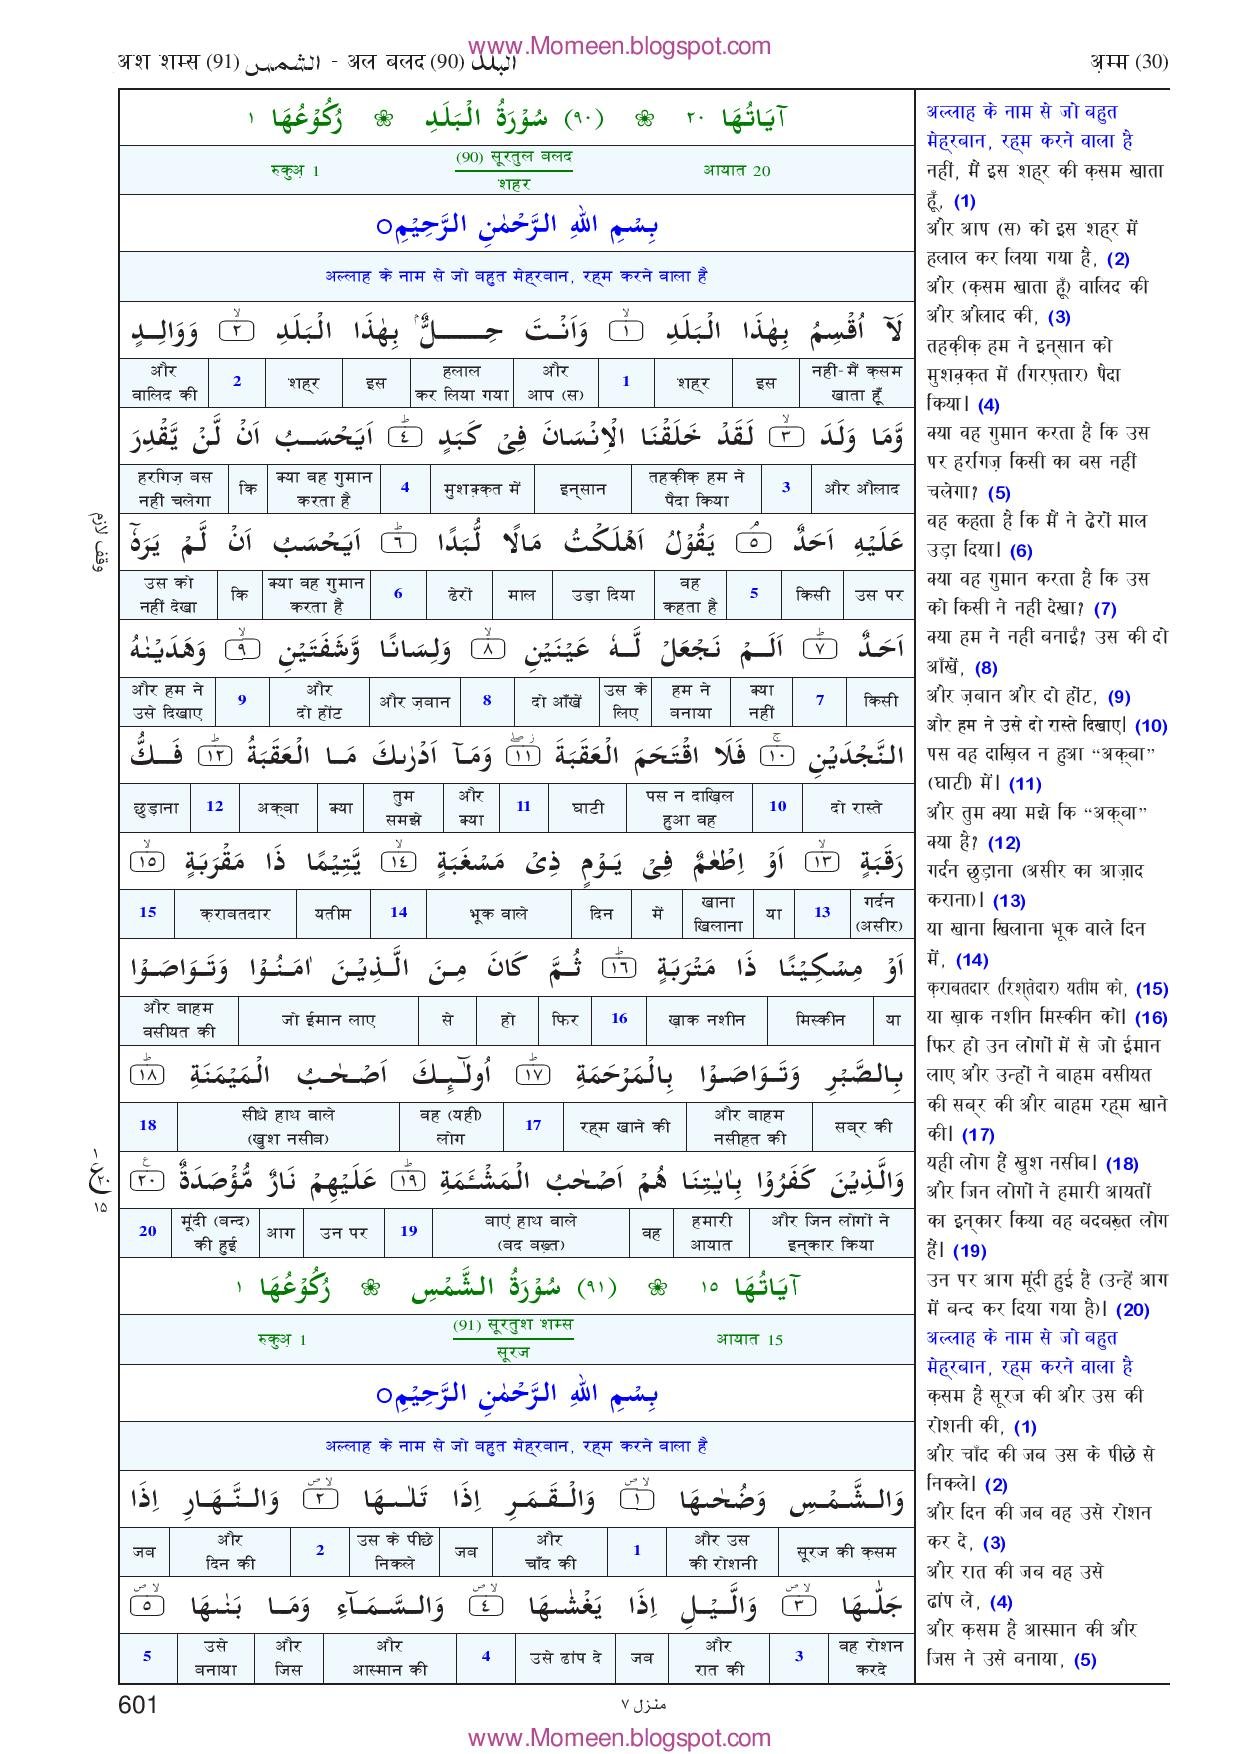 www.Momeen.blogspot.com
अश शम्स (91) الشمس - अल बलद (90) البلد
अ़म्म (30)
آيَاتُهَا ٢٠ ❀ (٩٠) سُوْرَةُ الْبَلَدِ ❀ رُكُوْعُهَا ١
रुकुअ़ 1 (90) सूरतुल बलद आयात 20
शहर
بِسْمِ اللّٰهِ الرَّحْمٰنِ الرَّحِيْمِ○
अल्लाह के नाम से जो बहुत मेह्रबान, रह्म करने वाला है
لَآ اُقْسِمُ بِهٰذَا الْبَلَدِ ١ وَاَنْتَ حِلٌّۢ بِهٰذَا الْبَلَدِ ٢ وَوَالِدٍ
और वालिद की | 2 | शह्र | इस | हलाल कर लिया गया | और आप (स) | 1 | शह्र | इस | नहीं-मैं क़सम खाता हूँ
وَّمَا وَلَدَ ٣ لَقَدْ خَلَقْنَا الْاِنْسَانَ فِيْ كَبَدٍ ٤ اَيَحْسَبُ اَنْ لَّنْ يَّقْدِرَ
हरगिज़ बस नहीं चलेगा | कि | क्या वह गुमान करता है | 4 | मुशक़्क़त में | इन्सान | तहक़ीक़ हम ने पैदा किया | 3 | और औलाद
عَلَيْهِ اَحَدٌ ٥ يَقُوْلُ اَهْلَكْتُ مَالًا لُّبَدًا ٦ اَيَحْسَبُ اَنْ لَّمْ يَرَهٗٓ
उस को नहीं देखा | कि | क्या वह गुमान करता है | 6 | ढेरों | माल | उड़ा दिया | वह कहता है | 5 | किसी | उस पर
اَحَدٌ ٧ اَلَمْ نَجْعَلْ لَّهٗ عَيْنَيْنِ ٨ وَلِسَانًا وَّشَفَتَيْنِ ٩ وَهَدَيْنٰهُ
और हम ने उसे दिखाए | 9 | और दो होंट | और ज़बान | 8 | दो आँखें | उस के लिए | हम ने बनाया | क्या नहीं | 7 | किसी
النَّجْدَيْنِ ١٠ فَلَا اقْتَحَمَ الْعَقَبَةَ ١١ وَمَآ اَدْرٰىكَ مَا الْعَقَبَةُ ١٢ فَكُّ
छुड़ाना | 12 | अक़्बा | क्या | तुम समझे | और क्या | 11 | घाटी | पस न दाख़िल हुआ वह | 10 | दो रास्ते
رَقَبَةٍ ١٣ اَوْ اِطْعٰمٌ فِيْ يَوْمٍ ذِيْ مَسْغَبَةٍ ١٤ يَّتِيْمًا ذَا مَقْرَبَةٍ ١٥
15 | क़राबतदार | यतीम | 14 | भूक वाले | दिन | में | खाना खिलाना | या | 13 | गर्दन (असीर)
اَوْ مِسْكِيْنًا ذَا مَتْرَبَةٍ ١٦ ثُمَّ كَانَ مِنَ الَّذِيْنَ اٰمَنُوْا وَتَوَاصَوْا
और बाहम वसीयत की | जो ईमान लाए | से | हो | फिर | 16 | ख़ाक नशीन | मिस्कीन | या
بِالصَّبْرِ وَتَوَاصَوْا بِالْمَرْحَمَةِ ١٧ اُولٰٓئِكَ اَصْحٰبُ الْمَيْمَنَةِ ١٨
18 | सीधे हाथ वाले (खुश नसीब) | वह (यही) लोग | 17 | रह्म खाने की | और बाहम नसीहत की | सब्र की
وَالَّذِيْنَ كَفَرُوْا بِاٰيٰتِنَا هُمْ اَصْحٰبُ الْمَشْـَٔمَةِ ١٩ عَلَيْهِمْ نَارٌ مُّؤْصَدَةٌ ٢٠
20 | मूंदी (बन्द) की हुई | आग | उन पर | 19 | बाएं हाथ वाले (बद बख़्त) | वह | हमारी आयात | और जिन लोगों ने इन्कार किया
آيَاتُهَا ١٥ ❀ (٩١) سُوْرَةُ الشَّمْسِ ❀ رُكُوْعُهَا ١
रुकुअ़ 1 (91) सूरतुश शम्स आयात 15
सूरज
بِسْمِ اللّٰهِ الرَّحْمٰنِ الرَّحِيْمِ○
अल्लाह के नाम से जो बहुत मेह्रबान, रह्म करने वाला है
وَالشَّمْسِ وَضُحٰىهَا ١ وَالْقَمَرِ اِذَا تَلٰىهَا ٢ وَالنَّهَارِ اِذَا
जब | और दिन की | 2 | उस के पीछे निकले | जब | और चाँद की | 1 | और उस की रोशनी | सूरज की क़सम
جَلّٰىهَا ٣ وَالَّيْلِ اِذَا يَغْشٰىهَا ٤ وَالسَّمَآءِ وَمَا بَنٰىهَا ٥
5 | उसे बनाया | और जिस | और आस्मान की | 4 | उसे ढांप दे | जब | और रात की | 3 | वह रोशन करदे
وقف لازم
ع
١
٢٠
١٥
अल्लाह के नाम से जो बहुत
मेह्रबान, रह्म करने वाला है
नहीं, मैं इस शह्र की क़सम खाता
हूँ, (1)
और आप (स) को इस शह्र में
हलाल कर लिया गया है, (2)
और (क़सम खाता हूँ) वालिद की
और औलाद की, (3)
तहक़ीक़ हम ने इन्सान को
मुशक़्क़त में (गिरफ़्तार) पैदा
किया। (4)
क्या वह गुमान करता है कि उस
पर हरगिज़ किसी का बस नहीं
चलेगा? (5)
वह कहता है कि मैं ने ढेरों माल
उड़ा दिया। (6)
क्या वह गुमान करता है कि उस
को किसी ने नहीं देखा? (7)
क्या हम ने नहीं बनाईं? उस की दो
आँखें, (8)
और ज़बान और दो होंट, (9)
और हम ने उसे दो रास्ते दिखाए। (10)
पस वह दाख़िल न हुआ “अक़्बा”
(घाटी) में। (11)
और तुम क्या मझे कि “अक़्बा”
क्या है? (12)
गर्दन छुड़ाना (असीर का आज़ाद
कराना)। (13)
या खाना खिलाना भूक वाले दिन
में, (14)
क़राबतदार (रिश्तेदार) यतीम को, (15)
या ख़ाक नशीन मिस्कीन को। (16)
फिर हो उन लोगों में से जो ईमान
लाए और उन्हों ने बाहम वसीयत
की सब्र की और बाहम रह्म खाने
की। (17)
यही लोग हैं खुश नसीब। (18)
और जिन लोगों ने हमारी आयतों
का इन्कार किया वह बदबख़्त लोग
हैं। (19)
उन पर आग मूंदी हुई है (उन्हें आग
में बन्द कर दिया गया है)। (20)
अल्लाह के नाम से जो बहुत
मेह्रबान, रह्म करने वाला है
क़सम है सूरज की और उस की
रोशनी की, (1)
और चाँद की जब उस के पीछे से
निकले। (2)
और दिन की जब वह उसे रोशन
कर दे, (3)
और रात की जब वह उसे
ढांप ले, (4)
और क़सम है आस्मान की और
जिस ने उसे बनाया, (5)
601
منزل ٧
www.Momeen.blogspot.com